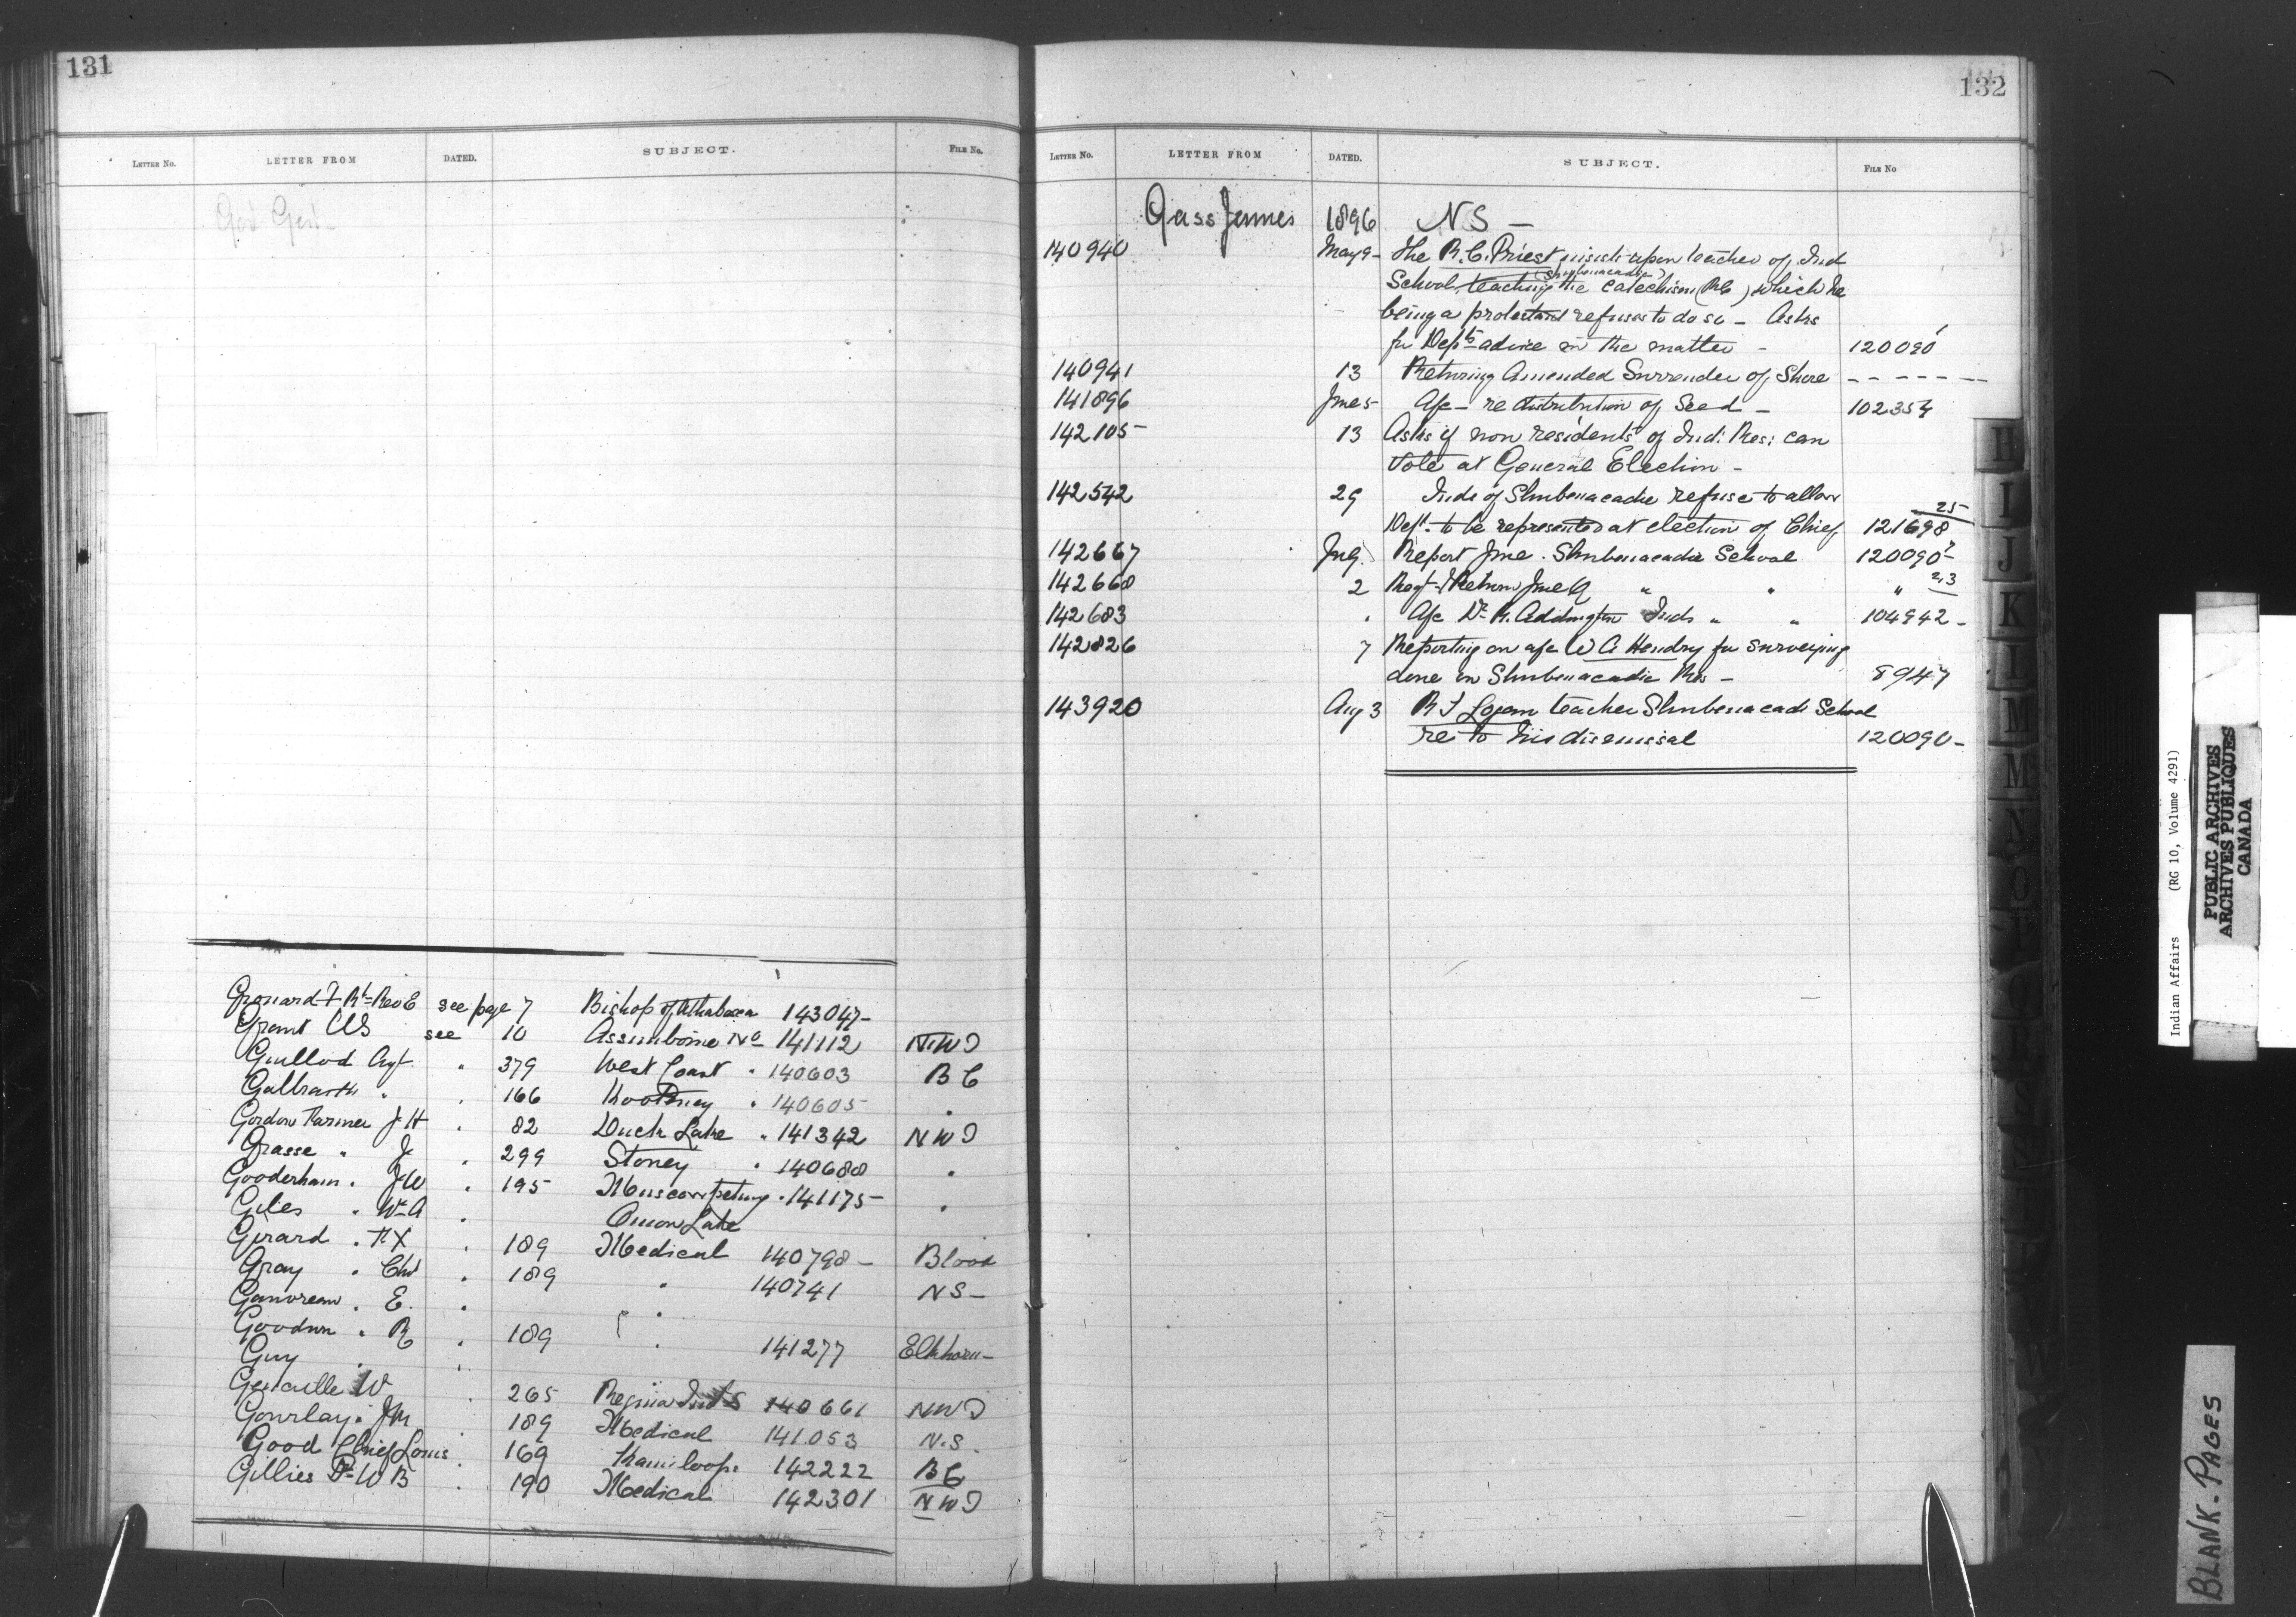 131
LETTER NO. LETTER FROM DATED. SUBJECT. FILE NO.
Gov Gen
Grouard Rt Rev E see page 7 Bishop of Athabasca 143047-
Grant WS see 10 Assiniboine No 141112 NWT
Guillod Agt. " 379 West Coast " 140603 BC
Galbraith " " 166 Kootenay " 140605 "
Gordon Farmer JH " 82 Duck Lake " 141342 NWT
Grasse " J " 299 Stoney " 140688 "
Gooderham " JW " 195 Muscowpetung " 141175- "
Giles " Wm A " Onion Lake
Girard " FX " 189 Medical 140798- Blood
Gray " Chs " 189 " 140741 NS-
Gauvreau " E. " "
Goodwin " R " 189 " 141277 Elkhorn-
Guy
W 265 Regina Inds 140661 NWT
Gourlay " JM 189 Medical 141053 N.S.
Good Chief Louis 169 Kamloops 142222 BC
Gillies Dr WB 190 Medical 142301 NWT
132
LETTER NO. LETTER FROM DATED. SUBJECT. FILE NO
Gass James 1896 NS-
140940 May 9- The R.C. Priest insists upon teacher of Ind
School (Shubenacadie) teaching the Catechism (RC) which he
being a protestant refuses to do so - Asks
for Depts advice in the matter - 120090
140941 13 Returning Amended Surrender of Shore - - - - - -
141896 June 5 A/c- re distribution of Seed - 102354
142105- 13 Asks if non residents of Ind: Res: can
Vote at General Election -
142542 29 Inds of Shubenacadie refuse to allow
Dept. to be represented at election of Chief 121698 25
142667 July Report June. Shubenacadie School 120090
142668 2 Reqt & Return June Q " " " 2,3
142683 " A/c Dr R. Addington Inds " " 104942-
142826 7 Reporting on a/c W A Hendry for surveying
done on Shubenacadie Res - 8947
143920 Aug 3 R J Logan teacher Shubenacadi School
re to his dismissal 120090-
H
I
J
K
L
M
Mc
N
O
Indian Affairs (RG 10, Volume 4291)
PUBLIC ARCHIVES
ARCHIVES PUBLIQUES
CANADA
BLANK-PAGES